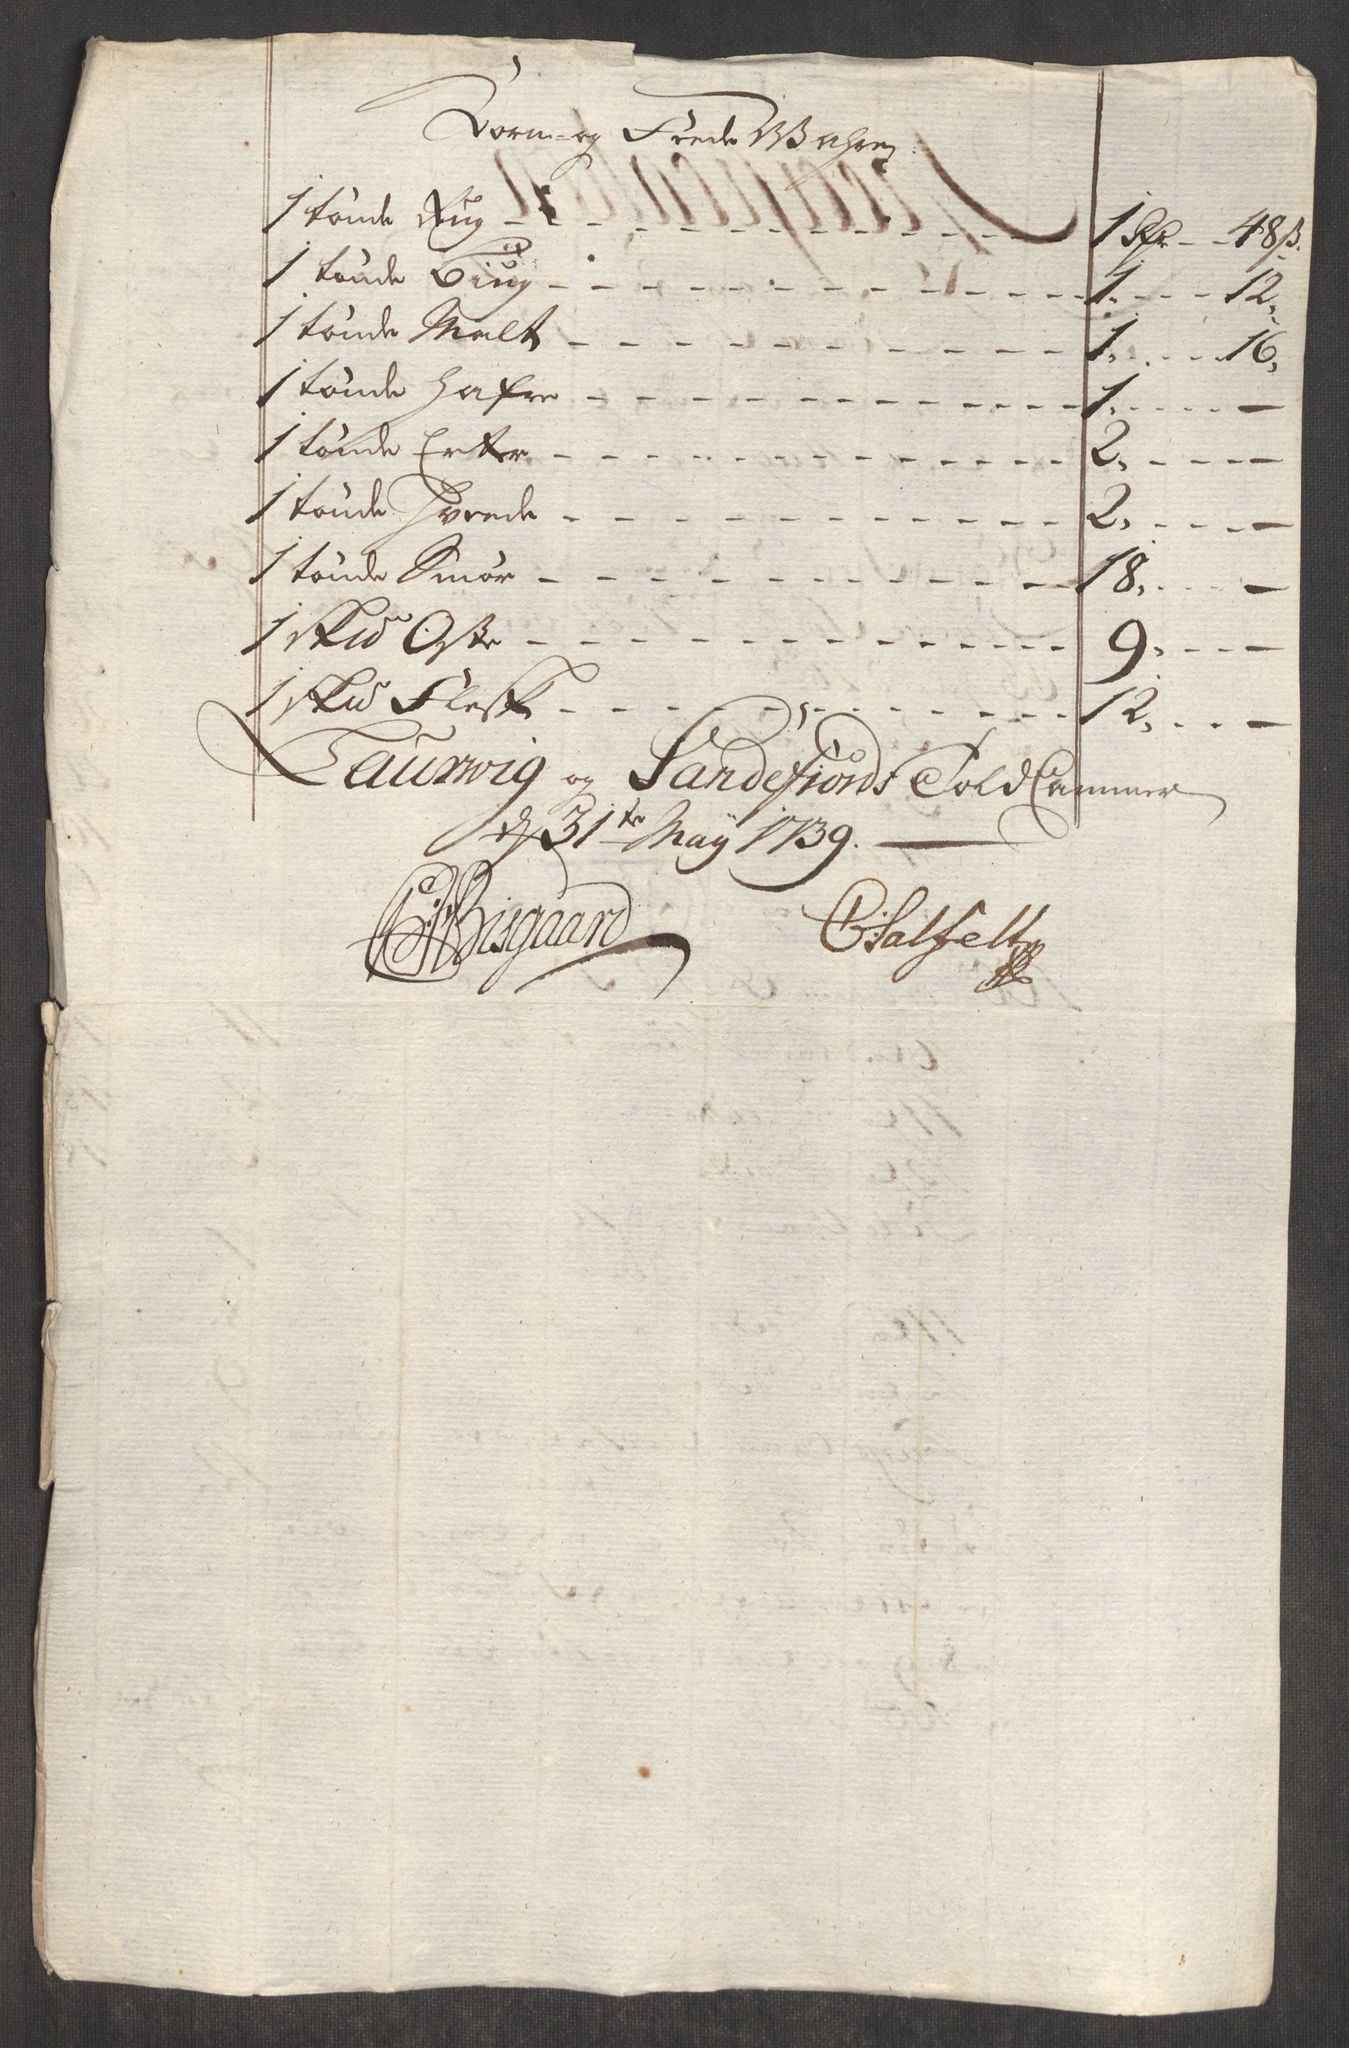 Korn- og Fede Wahre
1 tønde Rug - - - 1 Rdr. - 48 ß.
1 tønde Biug - - - 1. - - 12,
1 tønde Malt - - - 1. - - 16,
1 tønde Hafre - - - 1. - - —
1 tønde Erter - - - 2. - - —
1 tønde Hvede - - - 2. - - —
1 tønde Smør - - - 18. - - —
1 skud Oste - - - 9. - - —
1 skud Flesk - - - 12. - - —
Laurwig og Sandefiords Told Cammer
d 31te May 1739.
Bisgaard CSalfelt